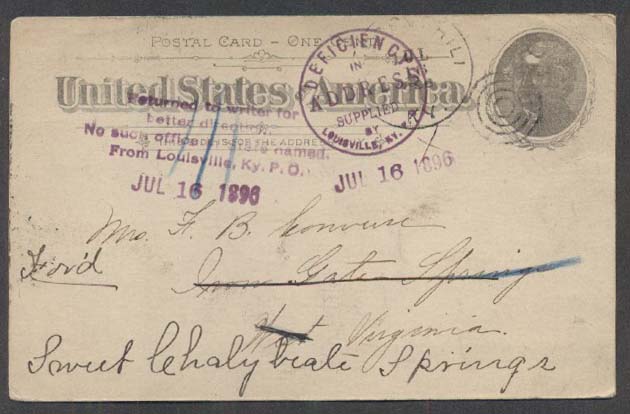 POSTAL CARD - ONE CENT
United States of America.
DEFICIENCY
IN
ADDRESS
SUPPLIED
BY
LOUISVILLE, KY.
Returned to writer for
better direction.
No such office named.
From Louisville, Ky. P. O.
JUL 16 1896
JUL 16 1896
Mrs. F. B. Converse
For'd
Iron Gate Springs
West Virginia.
Sweet Chalybeate Springs